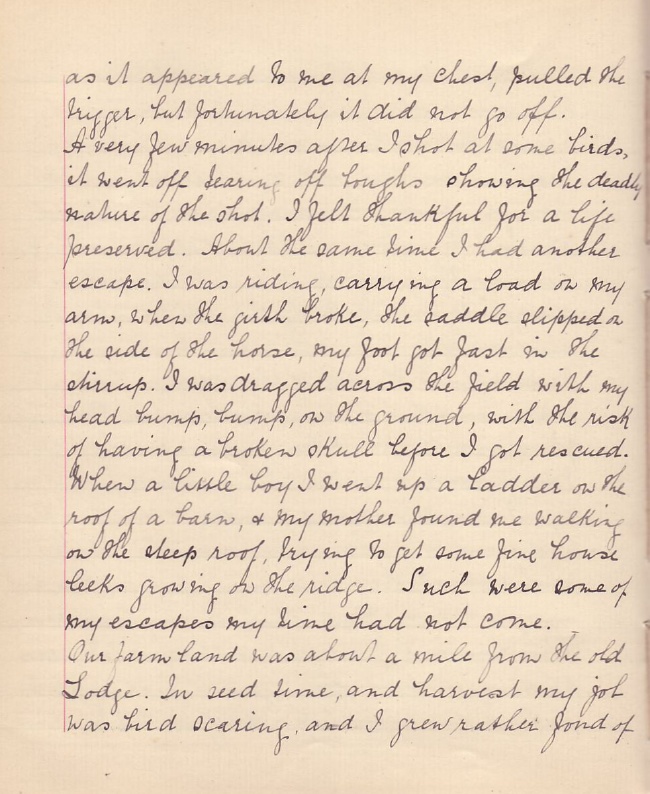 as it appeared to me at my chest, pulled the
trigger, but fortunately it did not go off.
A very few minutes after I shot at some birds,
it went off tearing off boughs showing the deadly
nature of the shot. I felt thankful for a life
preserved. About the same time I had another
escape. I was riding, carrying a load on my
arm, when the girth broke, the saddle slipped on
the side of the horse, my foot got fast in the
stirrup. I was dragged across the field with my
head bump, bump, on the ground, with the risk
of having a broken skull before I got rescued.
When a little boy I went up a ladder on the
roof of a barn, & my mother found me walking
on the steep roof, trying to get some fine house
leeks growing on the ridge. Such were some of
my escapes my time had not come.
Our farm land was about a mile from the old
Lodge. In seed time, and harvest my job
was bird scaring, and I grew rather fond of